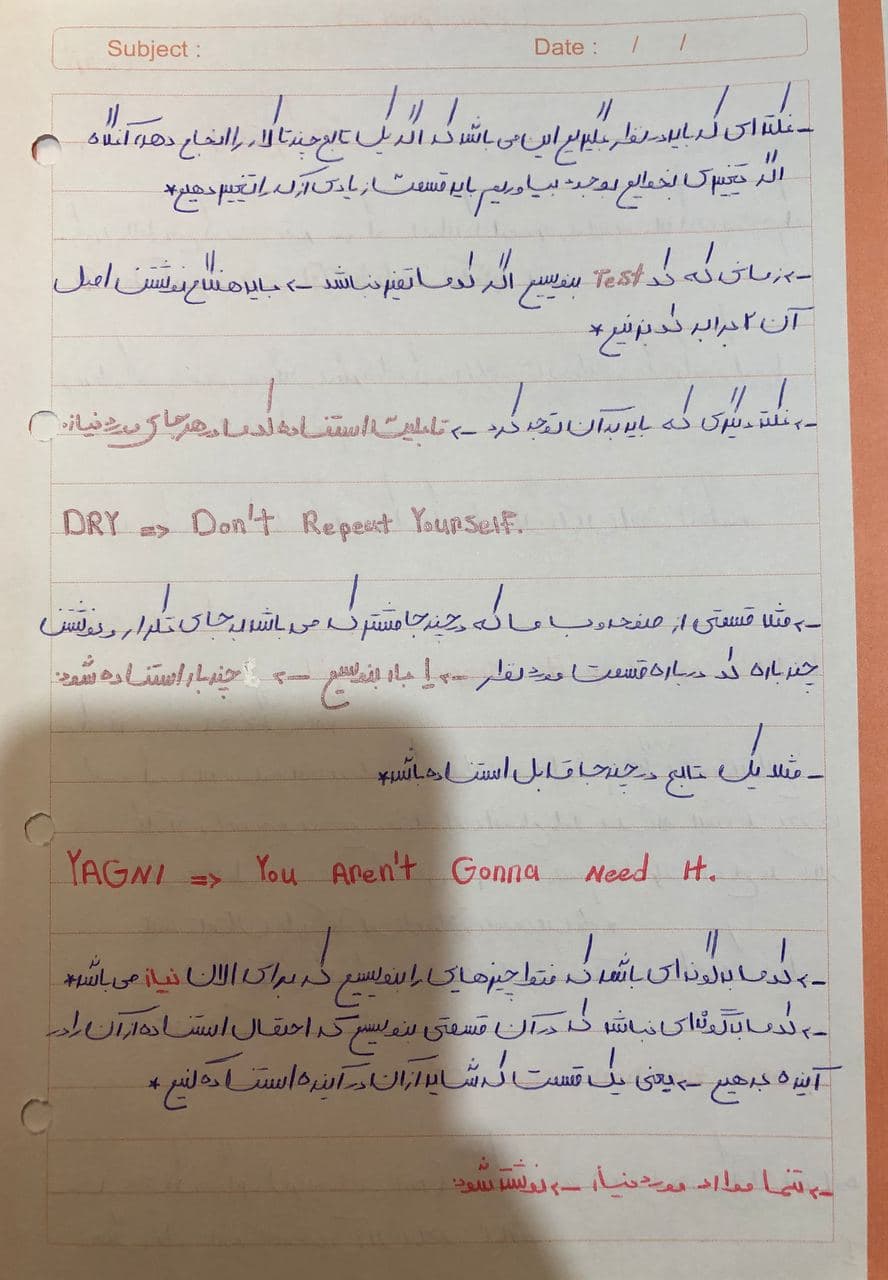 Subject :
Date :   /   /
- نکته‌ای که باید در نظر بگیریم این می باشد که اگر یک تابع چند تا کار را انجام دهد، آنگاه
اگر تغییری بخواهیم بوجود بیاوریم باید قسمت زیادی از کد را تغییر دهیم*
-> زمانی که کد Test بنویسیم اگر کد ما تمیز نباشد -> باید هنگام نوشتن اصل
آن ۲ برابر کد بزنیم*
-> نکته دیگری که باید به آن توجه کرد -> قابلیت استفاده کد ما در هر جای مورد نیاز.
DRY => Don't Repeat Yourself.
-> مثلا قسمتی از صفحه وب ما که در چند جا مشترک می باشد به جای تکرار و نوشتن
چند باره کد درباره قسمت مورد نظر -> ۱ بار بنویسیم -> چند بار استفاده شود.
- مثلا یک تابع در چند جا قابل استفاده باشد*
YAGNI => You Aren't Gonna Need It.
-> کد ما به گونه‌ای باشد که فقط چیزهایی را بنویسیم که برای الان نیاز می باشد*
-> کد ما به گونه‌ای نباشد که در آن قسمتی بنویسیم که احتمال استفاده از آن را در
آینده بدهیم -> یعنی یک قسمت که شاید از آن در آینده استفاده کنیم*
-> تنها موارد مورد نیاز -> نوشته شود.